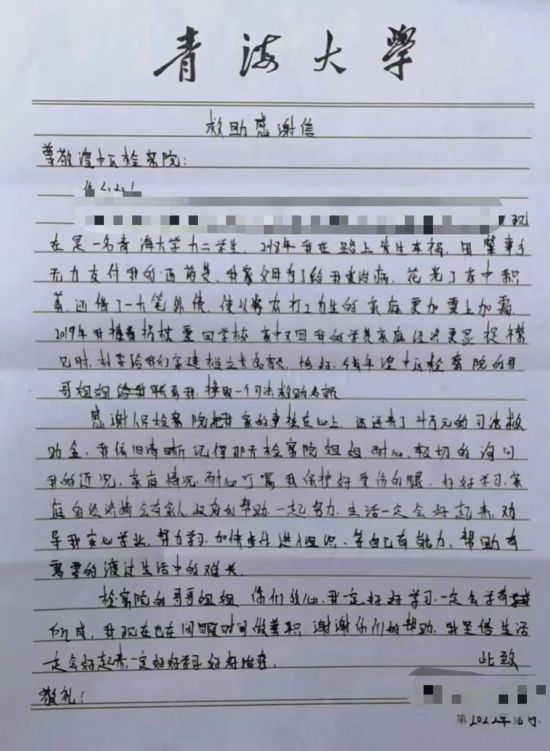 青海大学
救助感谢信
尊敬湟中区检察院:
你们好
现
在是一名青海大学大二学生，2018年我在路上发生车祸，因肇事方
无力支付我的医药费，我家父母为了给我治病，花光了家中积
蓄还借了一大笔外债，使以务农打工为生的家庭更加雪上加霜。
2019年我拄着拐杖重回学校，家中又因我的学费家庭经济更显捉襟
见肘，村委给我们家建档立卡名额，恰好，湟中区检察院的哥
哥姐姐联系我，一个司法救助名额
感谢检察院把我家的事放在心上，还送来了万元的司法救
助金，我依旧清晰记得那天检察院姐姐耐心、亲切的询问
我的近况，家庭情况，耐心叮嘱我保护好受伤的腿，好好学习，家
庭的经济将会有家人政府的帮助，一起努力，生活一定会好起来，劝
导我安心学业，努力学习，等自己有能力，帮助有
需要的渡过生活中的难关
检察院的哥哥姐姐，你们放心，我一定好好学习，一定会学有
所成，我现在已在闲暇时间做兼职，谢谢你们的帮助，我坚信生活
一定会好起来，一定好好学习好好治疗。 此致
敬礼!
第 2022年 月